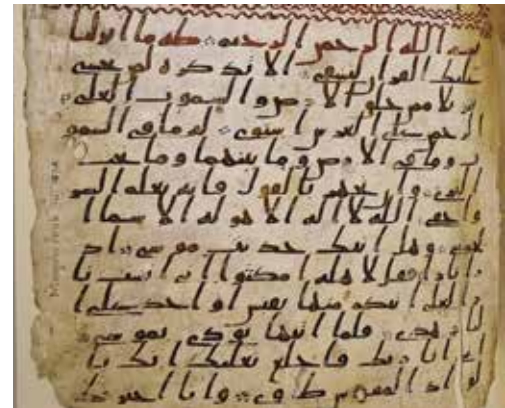 بسم الله الرحمن الرحيم طه ما انزلنا
عليك القران لتشقى الا تذكره لمن يخشى
تنزيلا ممن خلق الارض والسموت العلى
الرحمن على العرش استوى له ما في السمو
ت وما في الارض وما بينهما وما تحت
الثرى وان تجهر بالقول فانه يعلم السر
واخفى الله لا اله الا هو له الاسما ا
لحسنى وهل اتيك حديث موسى اذ
راى نارا فقل لاهله امكثوا اني انست نا
را لعلي اتيكم منها بقبس او اجد على ا
لنار هدى فلما اتيها نودي يموسى
اني انا ربك فاخلع نعليك انك با
لواد المقدس طوى وانا اخترتك